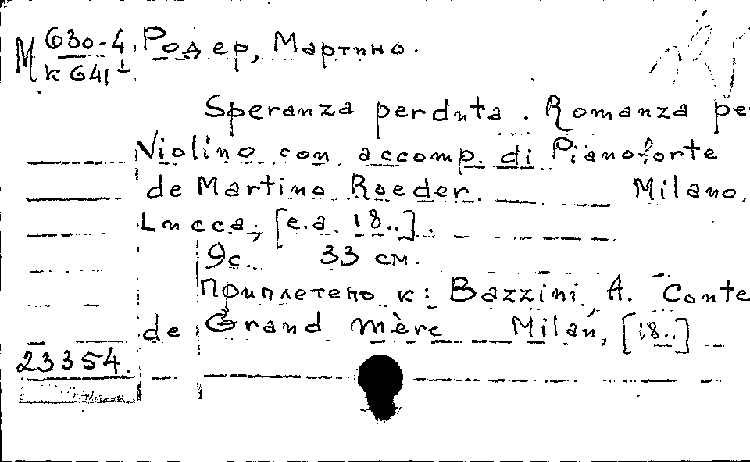 М 630-4 Родер, Мартино.
к 641
Speranza perduta. Romanza pe
Violino con accomp. di Pianoforte
de Martino Roeder. Milano,
Lucca, [e.a. 18..].
9с. 33 см.
Приплетено к: Bazzini, A. Conte
de Grand mère Milan, [18..]
23354.